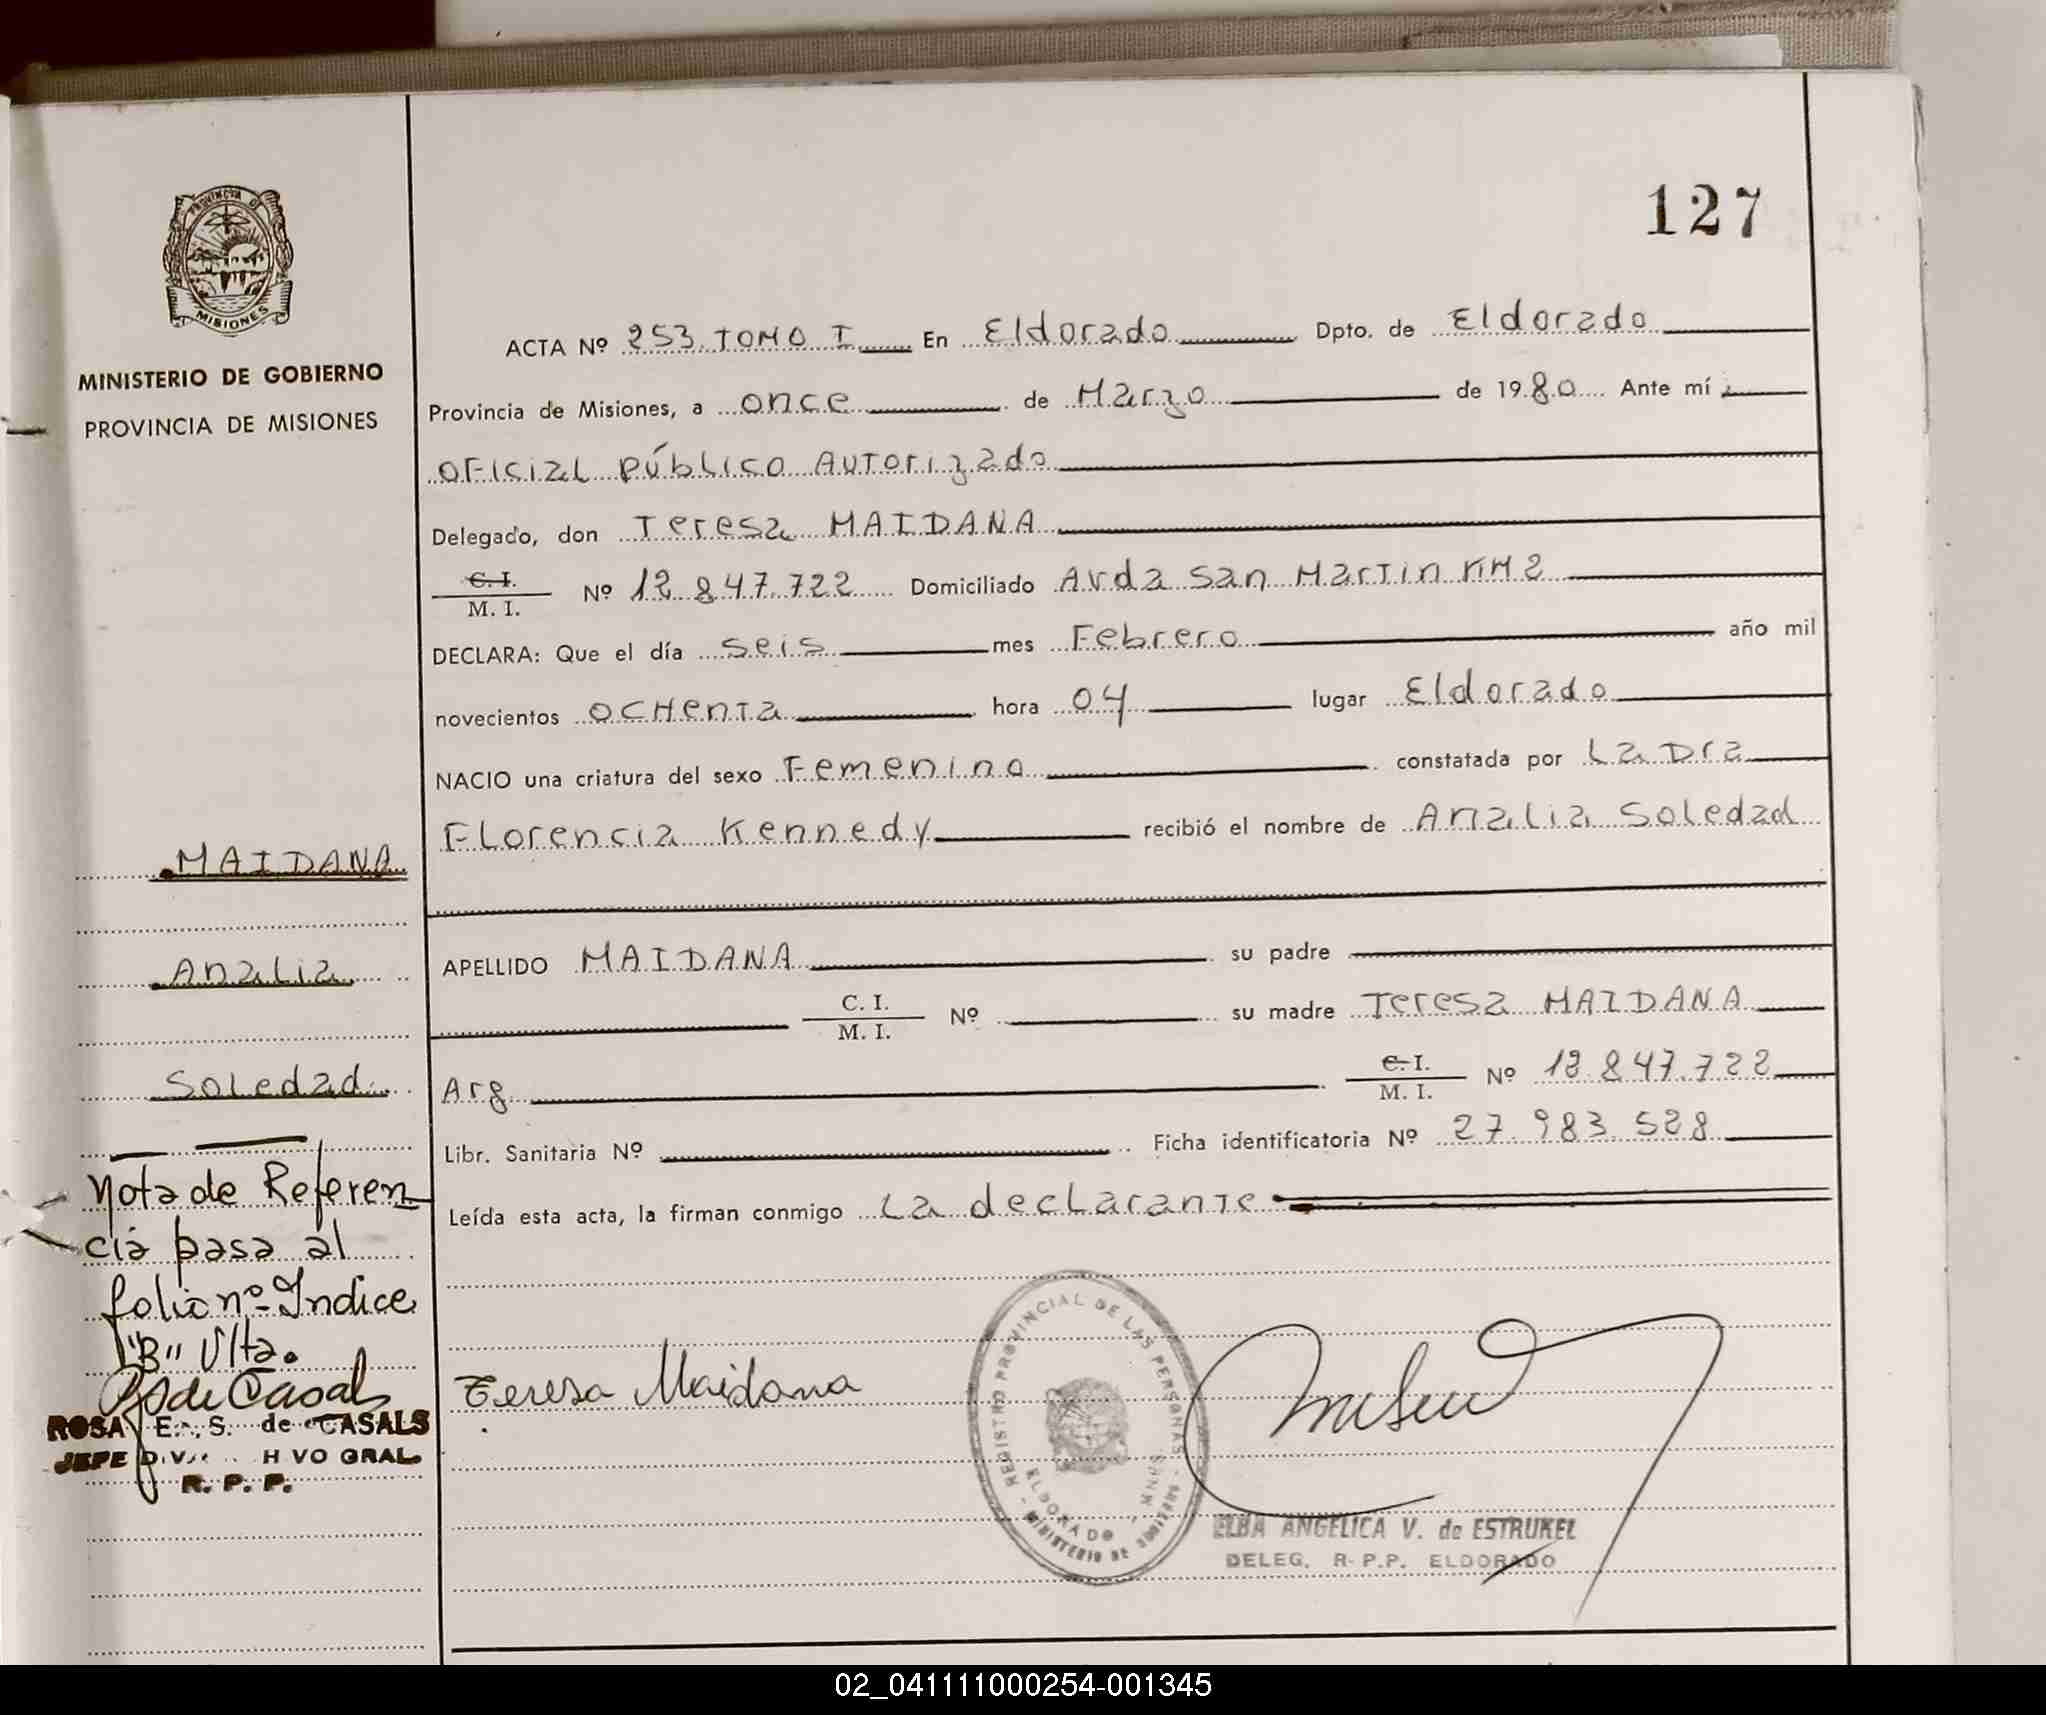 127
PROVINCIA DE
MISIONES
MINISTERIO DE GOBIERNO
PROVINCIA DE MISIONES
ACTA Nº 253 TOMO I En Eldorado Dpto. de Eldorado
Provincia de Misiones, a once de Marzo de 1980 Ante mí :
Oficial Público Autorizado
Delegado, don Teresa MAIDANA
C. I.
M. I.
Nº 12.847.722 Domiciliado Avda San Martin KM 2
DECLARA: Que el día seis mes Febrero año mil
novecientos ochenta hora 04 lugar Eldorado
NACIO una criatura del sexo Femenino constatada por La Dra
Florencia Kennedy recibió el nombre de Analia Soledad
APELLIDO MAIDANA su padre
C. I.
M. I.
Nº su madre Teresa MAIDANA
Arg
C. I.
M. I.
Nº 12.847.722
Libr. Sanitaria Nº Ficha identificatoria Nº 27.983.528
Leída esta acta, la firman conmigo La declarante
MAIDANA
Analia
Soledad
Nota de Referen
cia pasa al
folio nº Indice
"B" Vlta.
ROSA E. S. de CASALS
JEFE DIV. GRAL.
R. P. P.
Teresa Maidana
REGISTRO PROVINCIAL DE LAS PERSONAS
ELDORADO - MNES
MINISTERIO DE GOBIERNO
ELBA ANGELICA V. de ESTRUKEL
DELEG. R. P.P. ELDORADO
02_041111000254-001345